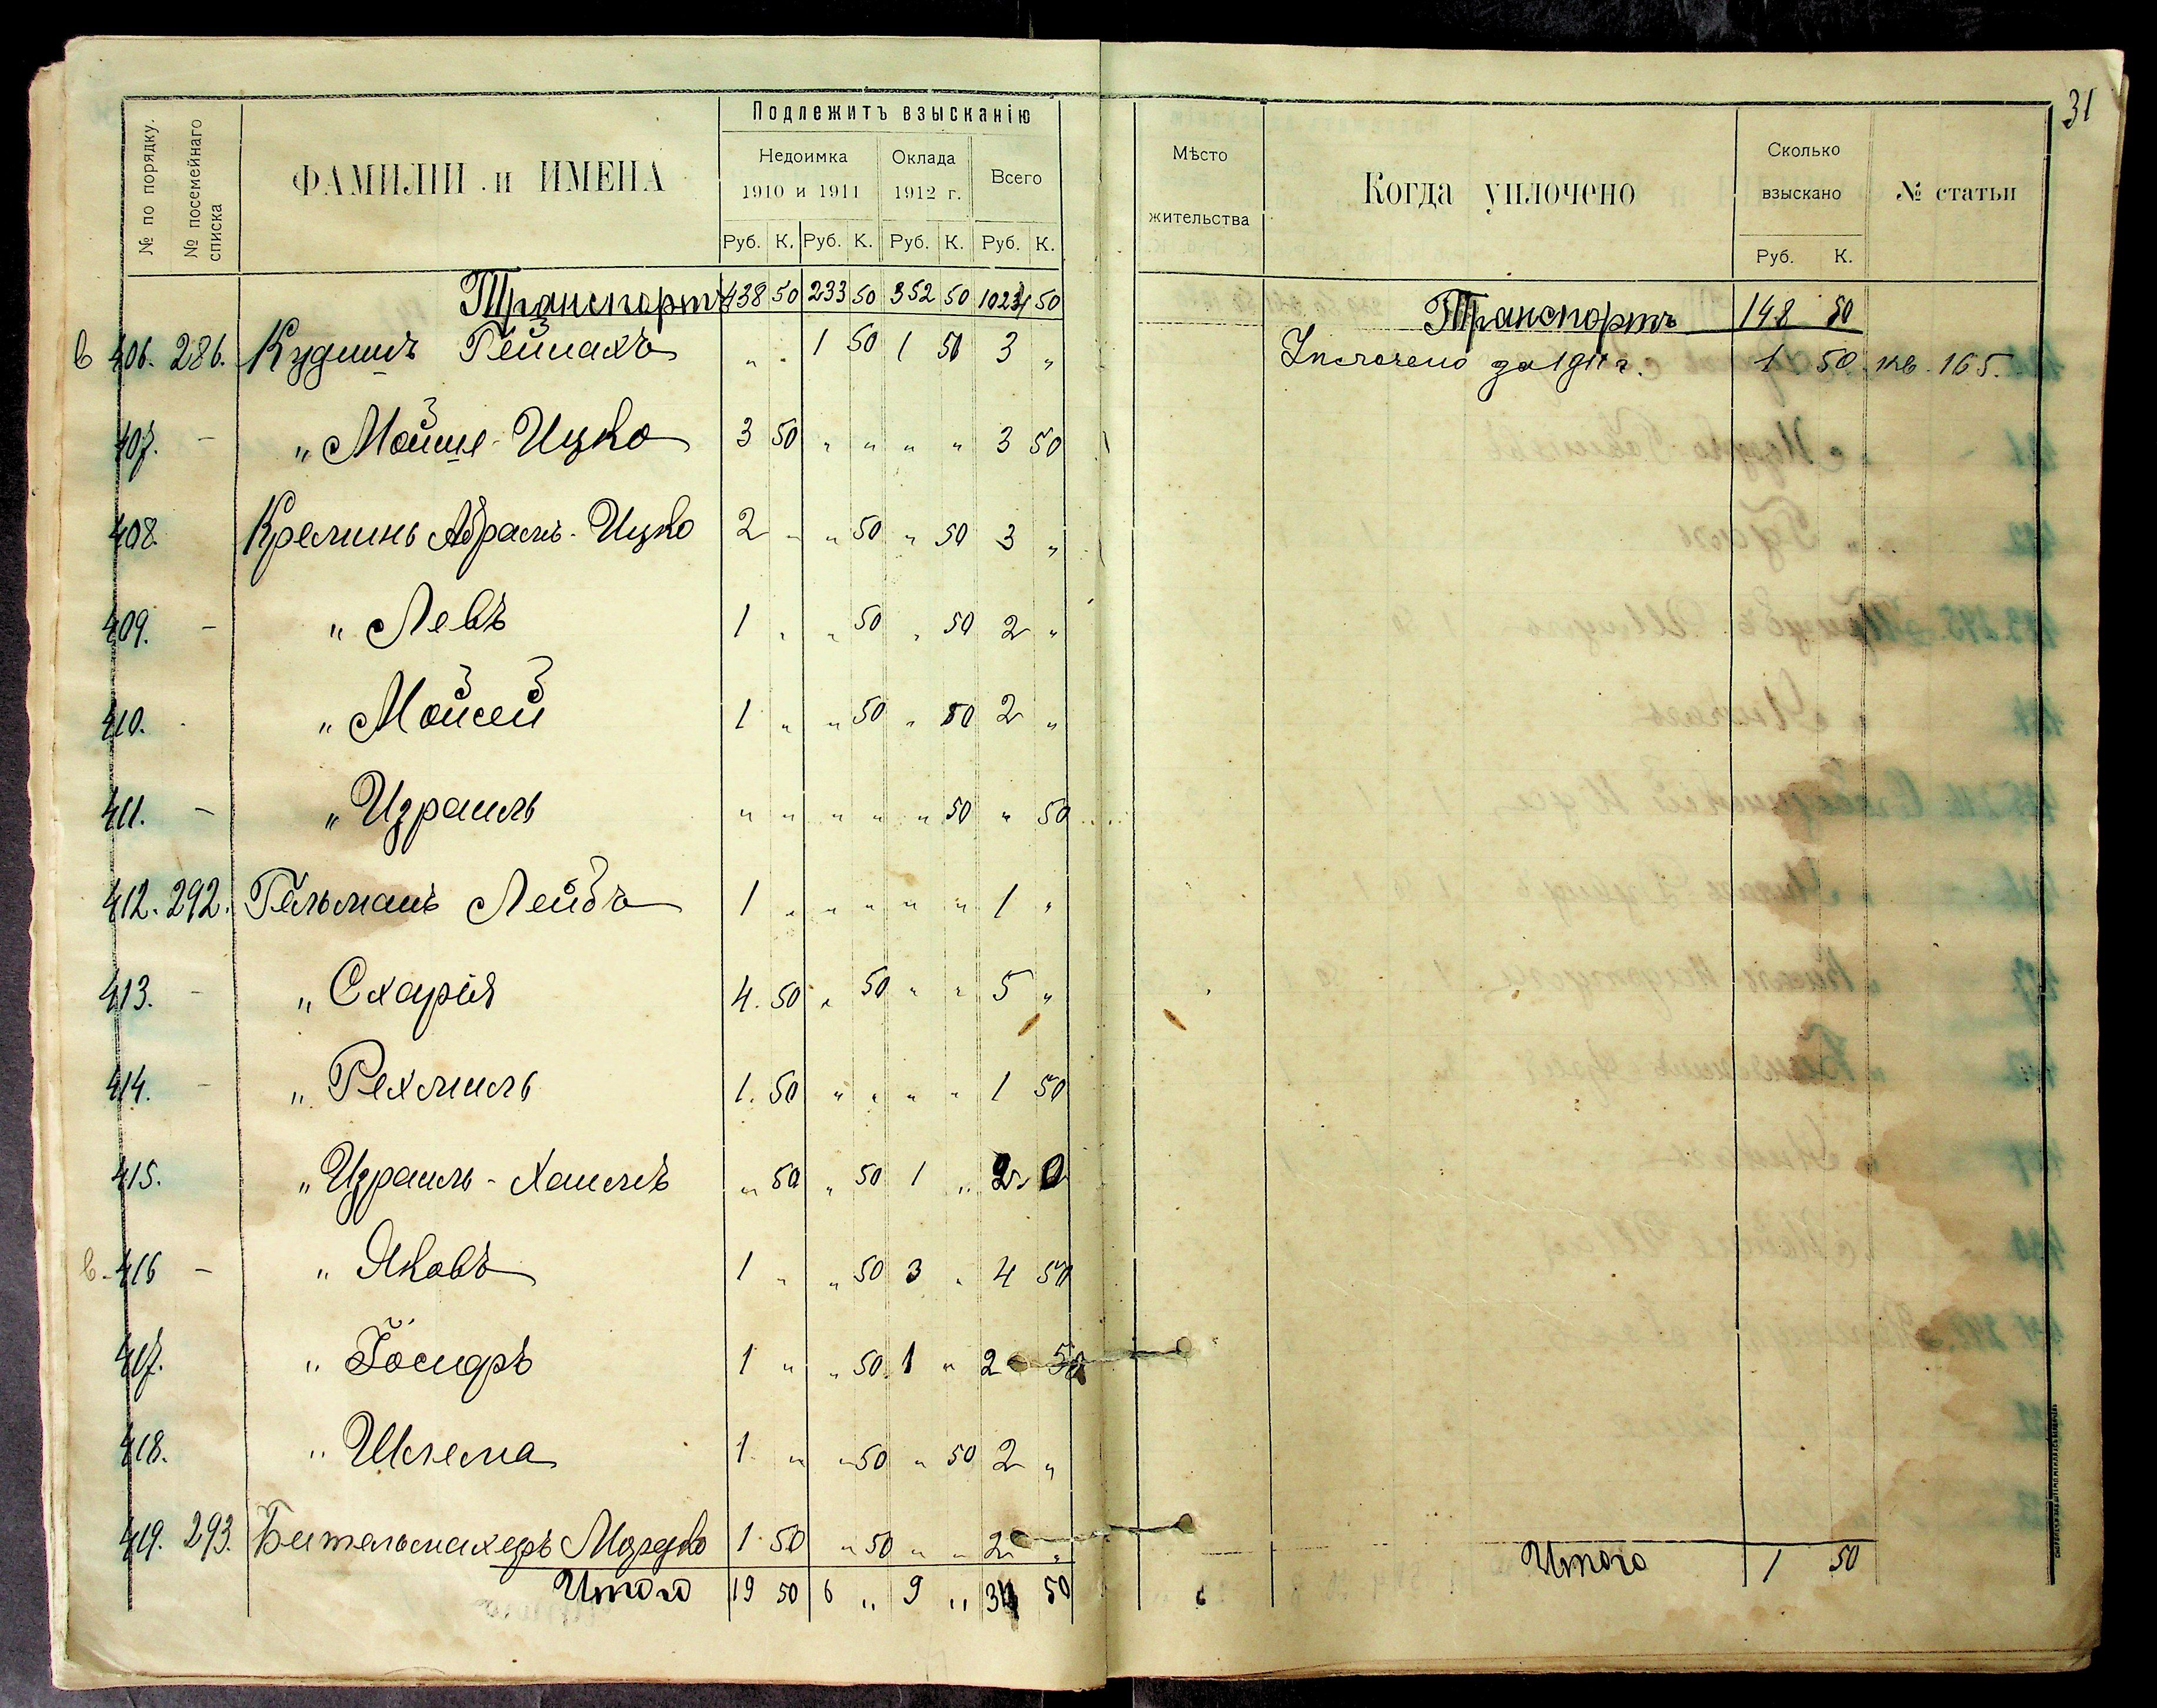 31
№ по порядку.
№ посемейнаго списка
ФАМИЛІИ и ИМЕНА
Подлежитъ взысканію
Недоимка 1910 и 1911
Оклада 1912 г.
Всего
Руб. К. Руб. К. Руб. К. Руб. К.
Мѣсто жительства
Когда уплочено
Сколько взыскано
Руб. К.
№ статьи
Транспортъ 438 50 233 50 352 50 1024 50
Транспортъ 148 50
в 406. 286. Кудишъ „ „ 1 50 1 50 3 „
1 50 кв. 165.
407. - „ Мойше-Ицко 3 50 „ „ „ „ 3 50
408. Креминь Абрамъ-Ицко 2 „ „ 50 „ 50 3 „
409. - „ Левъ 1 „ „ 50 „ 50 2 „
410. - „ Мойсей 1 „ „ 50 „ 50 2 „
411. - „ Израиль „ „ „ „ „ 50 „ 50
412. 292. Гельманъ Лейбъ 1 „ „ „ „ „ 1 „
413. - „ Схарія 4. 50 „ 50 „ „ 5 „
414. - „ Рехмиль 1. 50 „ „ „ „ 1 50
415. „ Израиль-Хаимъ „ 50 „ 50 1 „ 2 0
в. 416 - „ Яковъ 1 „ „ 50 3 „ 4 50
417. „ Іосифъ 1 „ „ 50 1 „ 2 50
418. „ Шлема 1 „ „ 50 „ 50 2 „
419. 293. Бительмахеръ Мордко 1 50 „ 50 „ „ 2 „
Итого 19 50 6 „ 9 „ 34 50
Итого 1 50